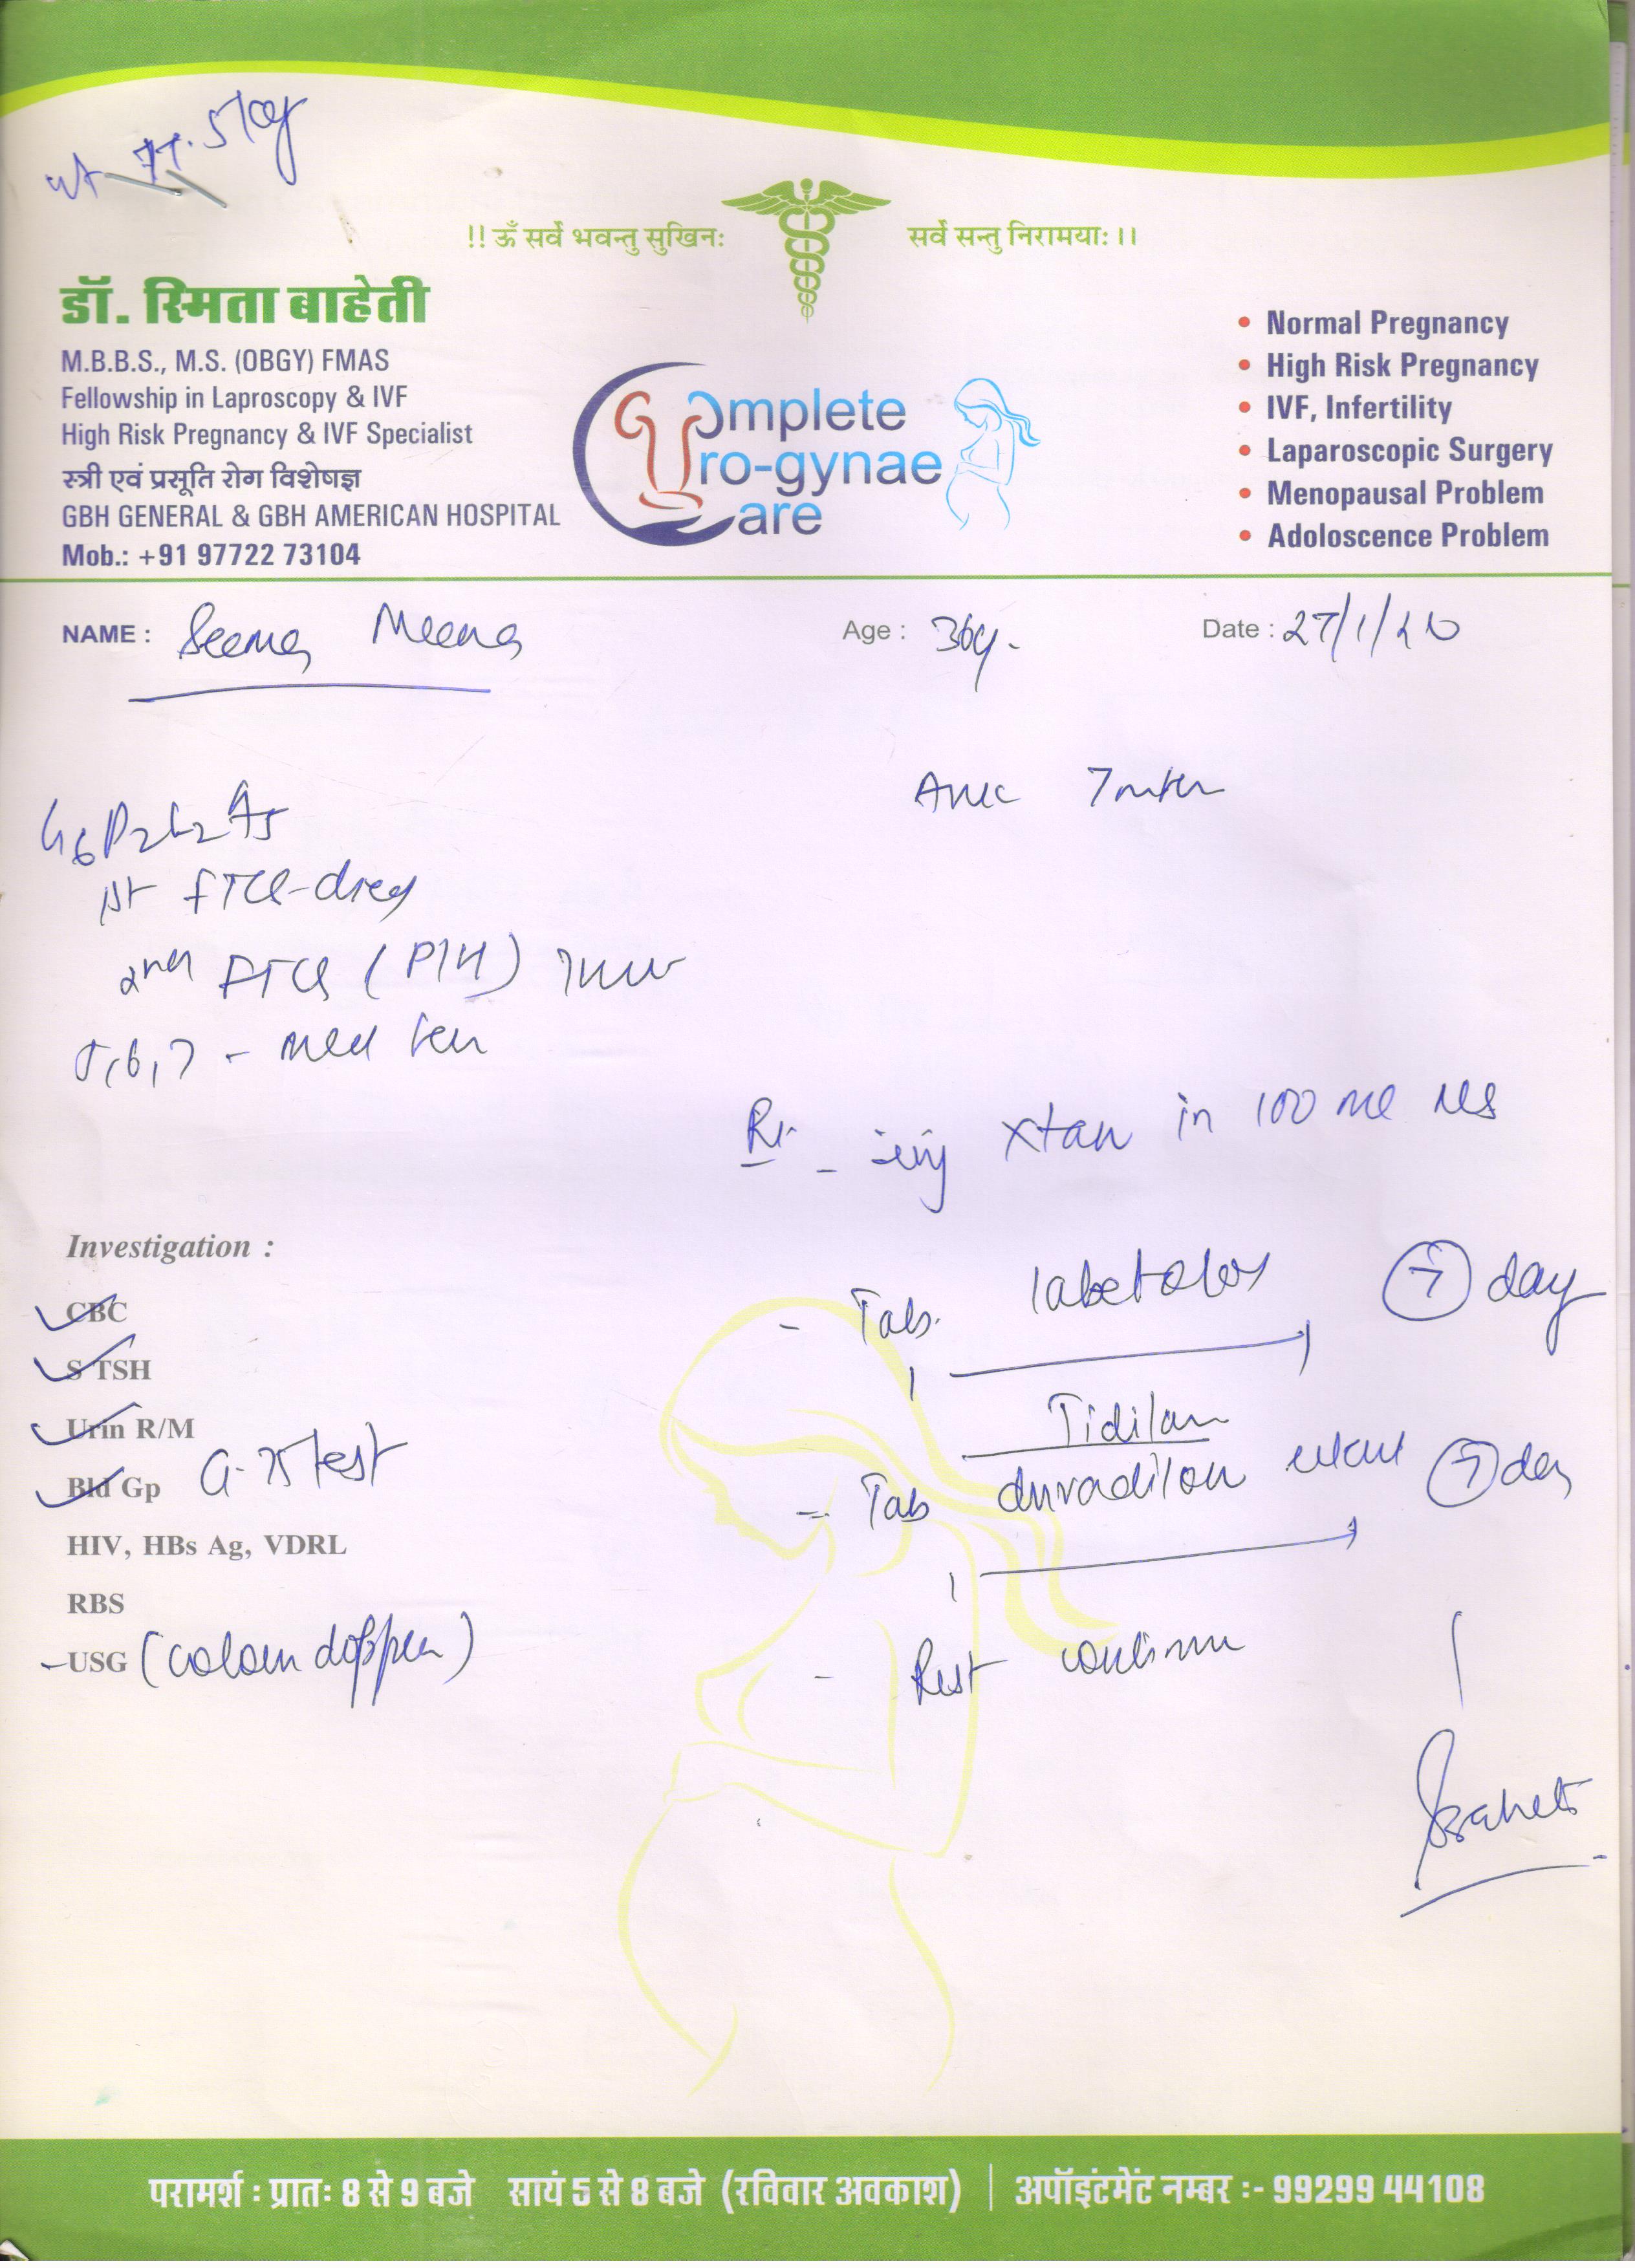 wt 77.5 kg
!! ॐ सर्वे भवन्तु सुखिनः सर्वे सन्तु निरामयाः।।
डॉ. स्मिता बाहेती
M.B.B.S., M.S. (OBGY) FMAS
Fellowship in Laproscopy & IVF
High Risk Pregnancy & IVF Specialist
स्त्री एवं प्रसूति रोग विशेषज्ञ
GBH GENERAL & GBH AMERICAN HOSPITAL
Mob.: +91 97722 73104
Complete
Uro-gynae
Care
• Normal Pregnancy
• High Risk Pregnancy
• IVF, Infertility
• Laparoscopic Surgery
• Menopausal Problem
• Adoloscence Problem
NAME : Seema Meena
Age : 36y.
Date : 27/1/20
7
1st FTCS
2nd FTCS (PIH)
5,6,7 -
Rx - inj in 100 ml NS
Investigation :
CBC
S TSH
Urin R/M
Bld Gp
test
HIV, HBs Ag, VDRL
RBS
- USG (colour doppler)
- Tab. labetalol 7 day
Tidilan
- Tab duvadilan 7 day
- Rest continue
परामर्श : प्रातः 8 से 9 बजे सायं 5 से 8 बजे (रविवार अवकाश) | अपॉइंटमेंट नम्बर :- 99299 44108